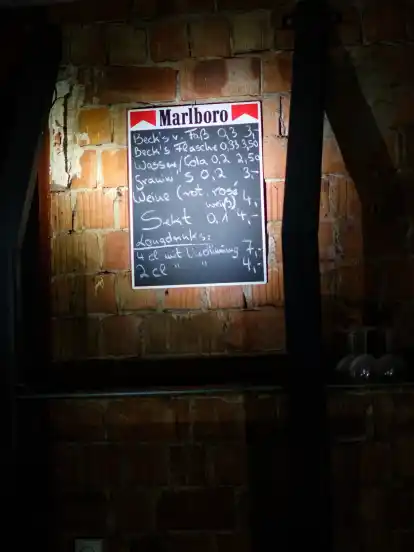 Marlboro
Beck's v. Faß 0,3 3,-
Beck's Flasche 0,33 3,50
Wasser/Cola 0,2 2,50
0,2 3,-
Weine (rot, rosé
weiß) 4,-
Sekt 0,1 4,-
Longdrinks:
4 cl mit 7,-
2 cl " " 4,-